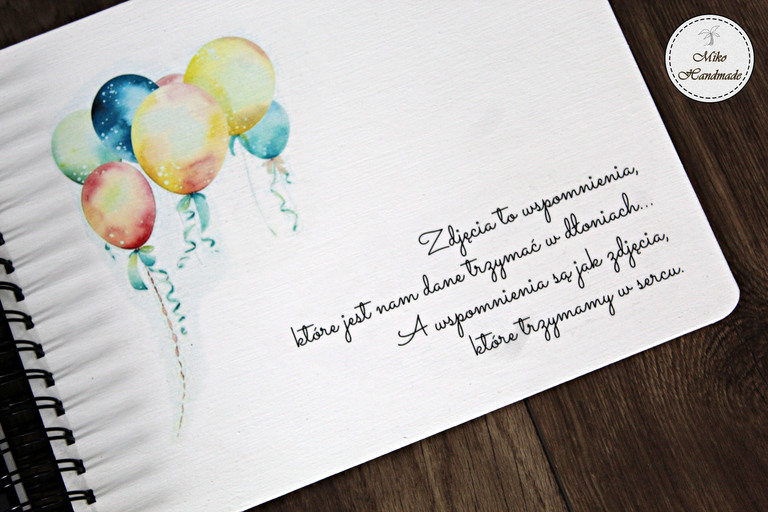 Miko
Handmade
Zdjęcia to wspomnienia,
które jest nam dane trzymać w dłoniach...
A wspomnienia są jak zdjęcia,
które trzymamy w sercu.